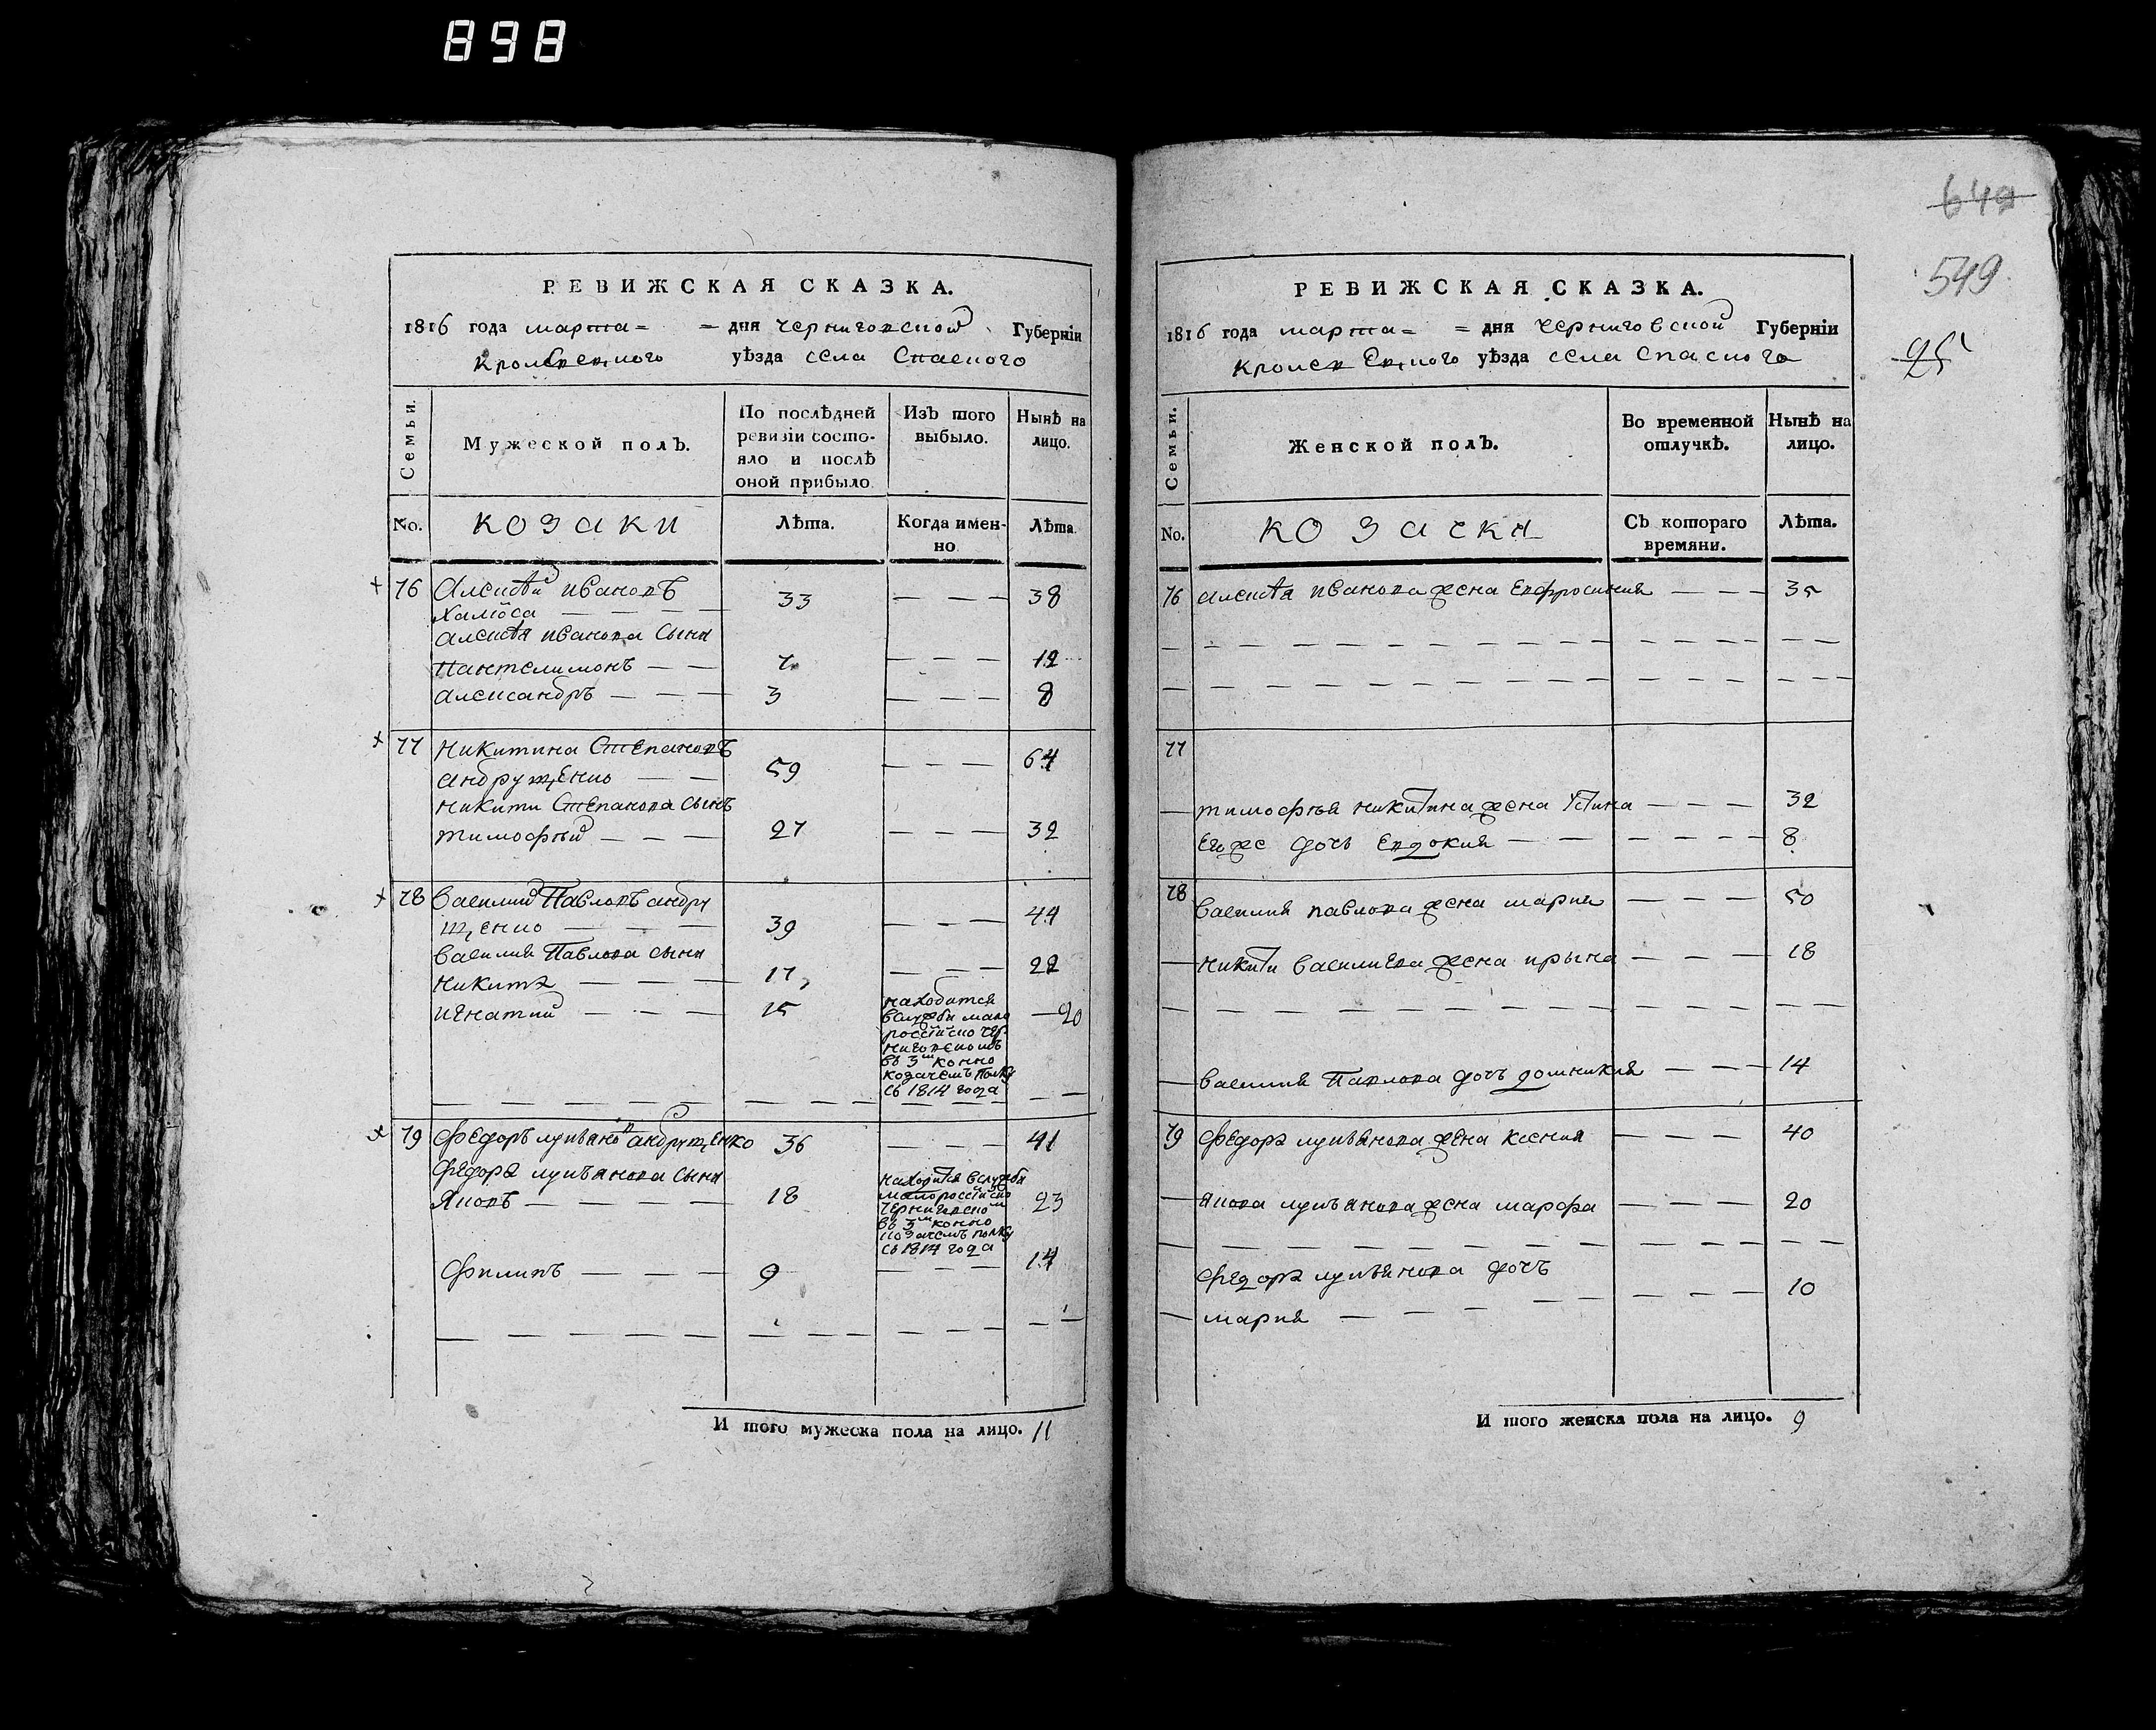 898
РЕВИЖСКАЯ СКАЗКА.
1816 года марта = = дня Черниговской Губерніи
уѣзда села Спаского
Семьи.
Мужеской полъ.
По послѣдней
ревизіи состо-
яло и послѣ
оной прибыло.
Изъ того
выбыло.
Нынѣ на
лицо.
No.
козаки
Лѣта.
Когда имен-
но
Лѣта.
76 Алексѣй Ивановъ 33 38
алексѣя иванова сыни
Пантелимонъ 7 12
александръ 3 8
77 Никитина Степановъ
андрущенко 59 64
Никити Степанова сынъ
тимофѣй 27 32
78 Василий Павловъ андру
щенко 39 44
Василия Павлова сыни
Никита 17 22
игнатий 15 20
находится
вслужби мало
российско чер-
ниговскомъ
въ 3м конно
козачемъ полку
съ 1814 года
79 Федоръ лукьяновъ андрущенко 36 41
Федора лукьянова сыни
Яковъ 18 23
находится вслужби
малороссийско
черниговском
въ 3м конно
козачемъ полку
съ 1814 года
Филипъ 9 14
И того мужеска пола на лицо. 11
649
549
95
РЕВИЖСКАЯ СКАЗКА.
1816 года марта = = дня Черниговской Губерніи
уѣзда села Спаского
Семьи.
Женской полъ.
Во временной
отлучкѣ.
Нынѣ на
лицо.
No.
козачки
Съ котораго
времяни.
Лѣта.
76 алексѣя иванова жена Евфросиния 35
77
тимофѣя никитина жена Устина 32
Егоже дочь Евдокия 8
78 Василия павлова жена мария 50
Никити василиева жена ирына 18
Василия Павлова дочь домникия 14
79 Федора лукьянова жена ксения 40
Якова лукьянова жена марфа 20
Федора лукьянова дочъ
мария 10
И того женска пола на лицо. 9